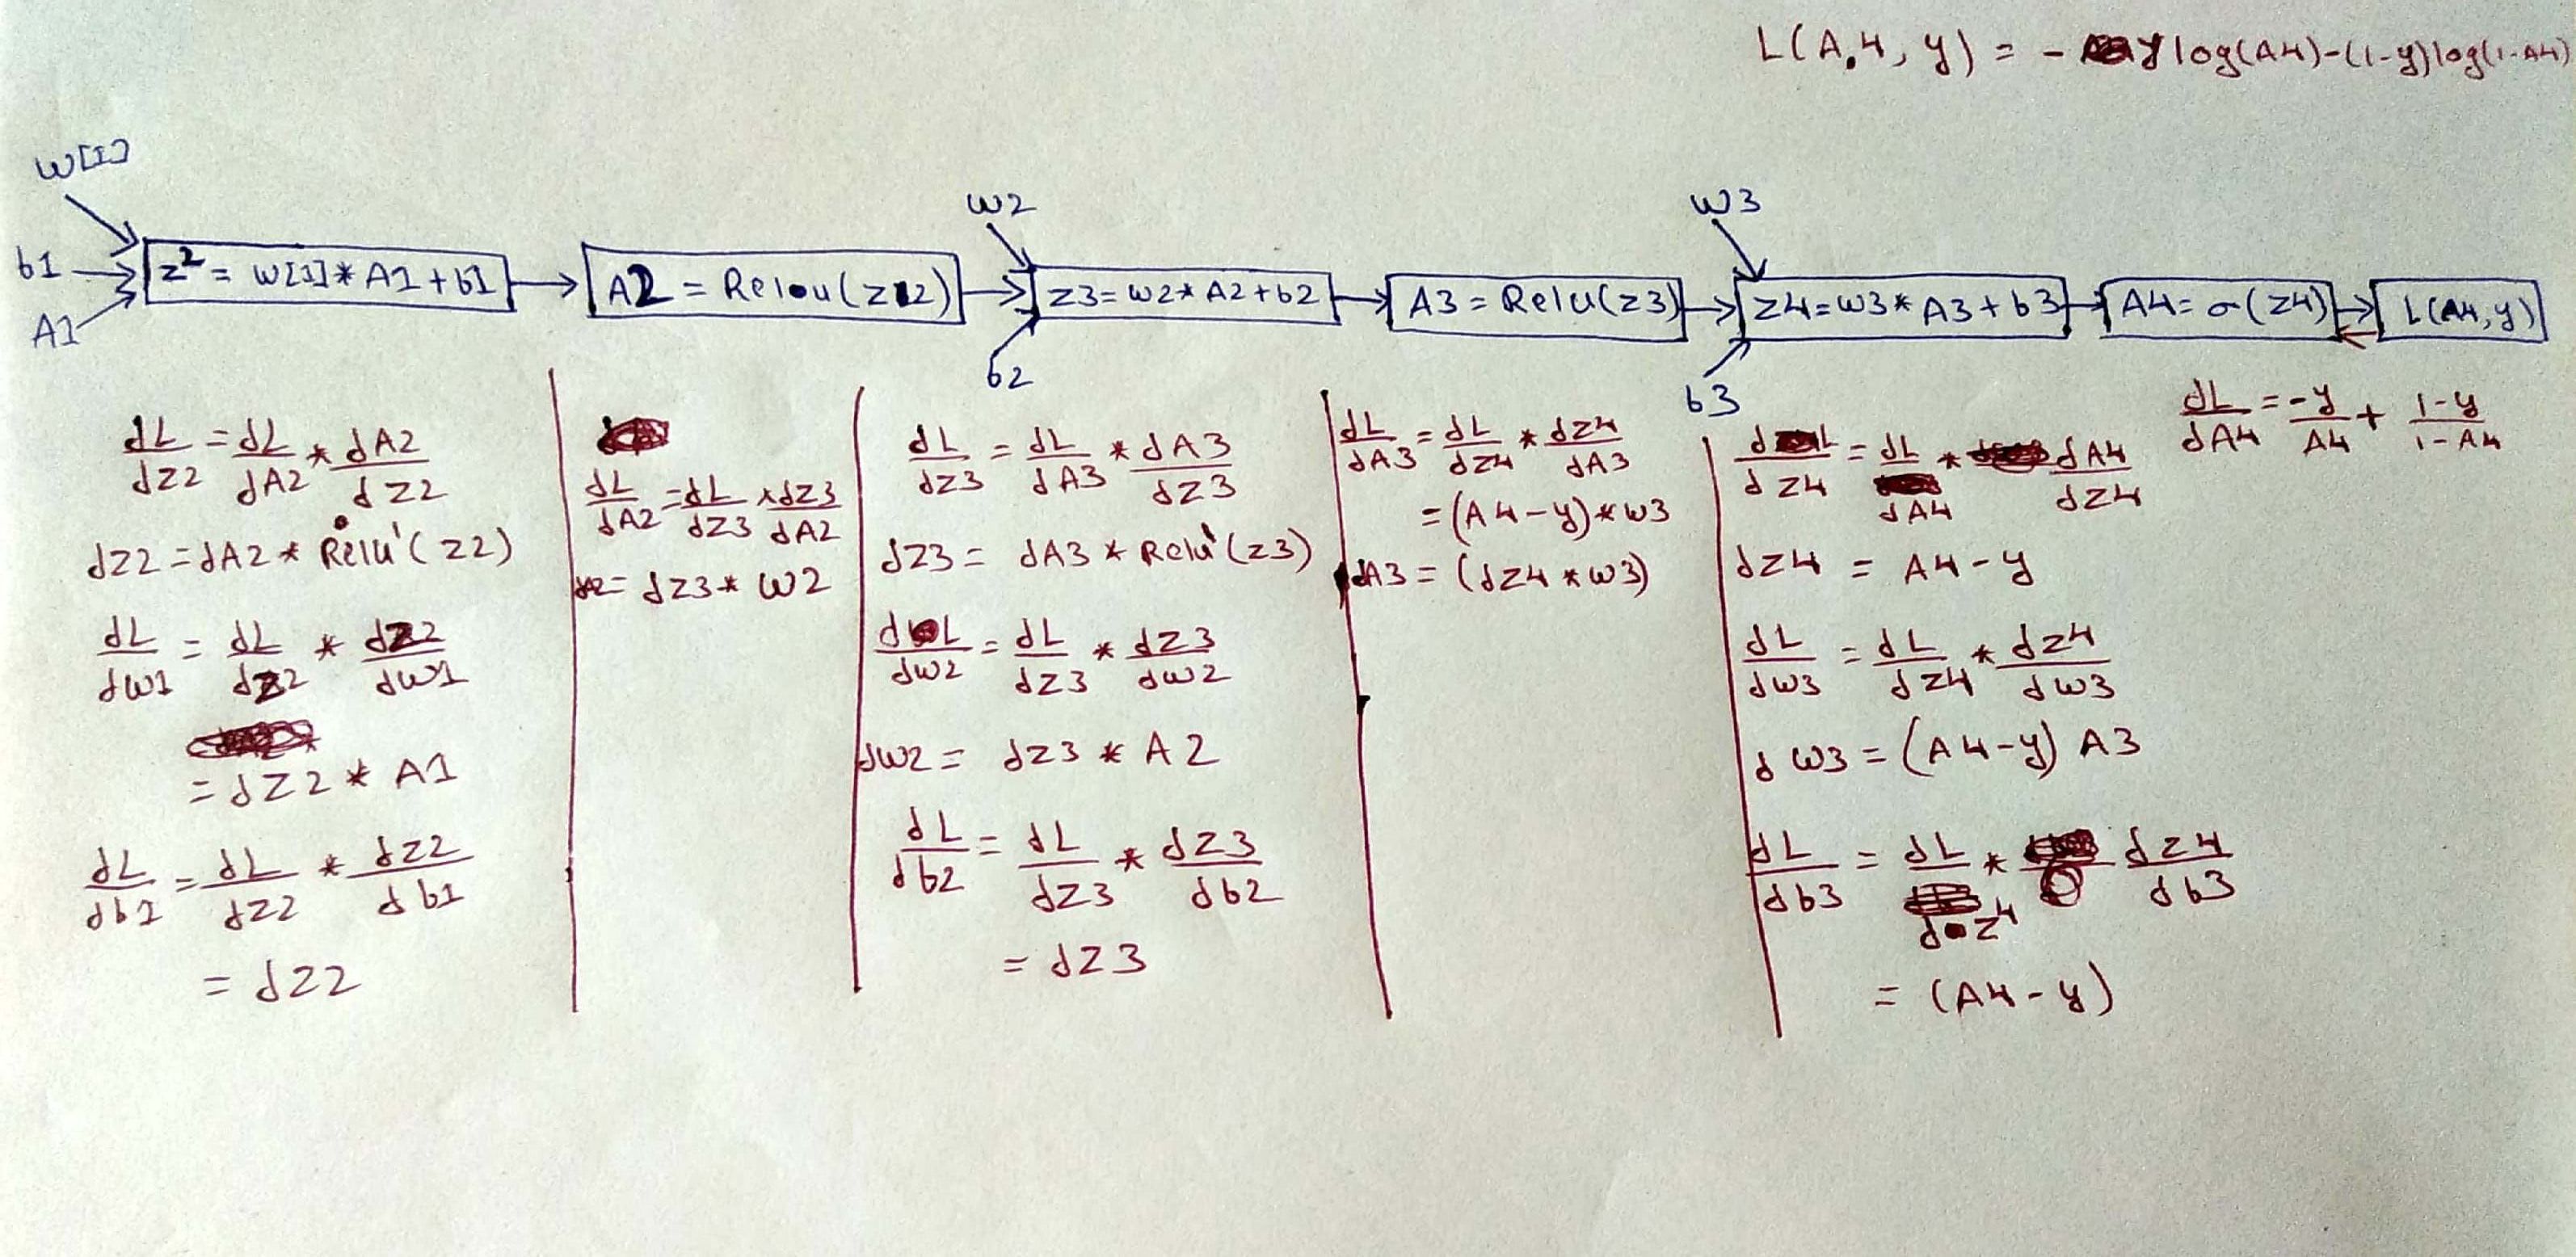 L(A4, y) = - y log(A4)-(1-y)log(1-A4)
W[1]
b1
A1
z2 = W[1]* A1 + b1
A2 = Relou(z2)
w2
b2
z3 = w2* A2 + b2
A3 = Relu(z3)
w3
b3
z4 = w3* A3 + b3
A4 = σ(z4)
L(A4, y)
dL/dz2 = dL/dA2 * dA2/dz2
dz2 = dA2 * Relu'(z2)
dL/dw1 = dL/dz2 * dz2/dw1
= dz2 * A1
dL/db1 = dL/dz2 * dz2/db1
= dz2
dL/dA2 = dL/dz3 * dz3/dA2
= dz3* w2
dL/dz3 = dL/dA3 * dA3/dz3
dz3 = dA3 * Relu'(z3)
dL/dw2 = dL/dz3 * dz3/dw2
dw2 = dz3 * A2
dL/db2 = dL/dz3 * dz3/db2
= dz3
dL/dA3 = dL/dz4 * dz4/dA3
= (A4-y)*w3
dA3 = (dz4 * w3)
dL/dz4 = dL/dA4 * dA4/dz4
dz4 = A4-y
dL/dw3 = dL/dz4 * dz4/dw3
dw3 = (A4-y) A3
dL/db3 = dL/dz4 * dz4/db3
= (A4-y)
dL/dA4 = -y/A4 + 1-y/1-A4